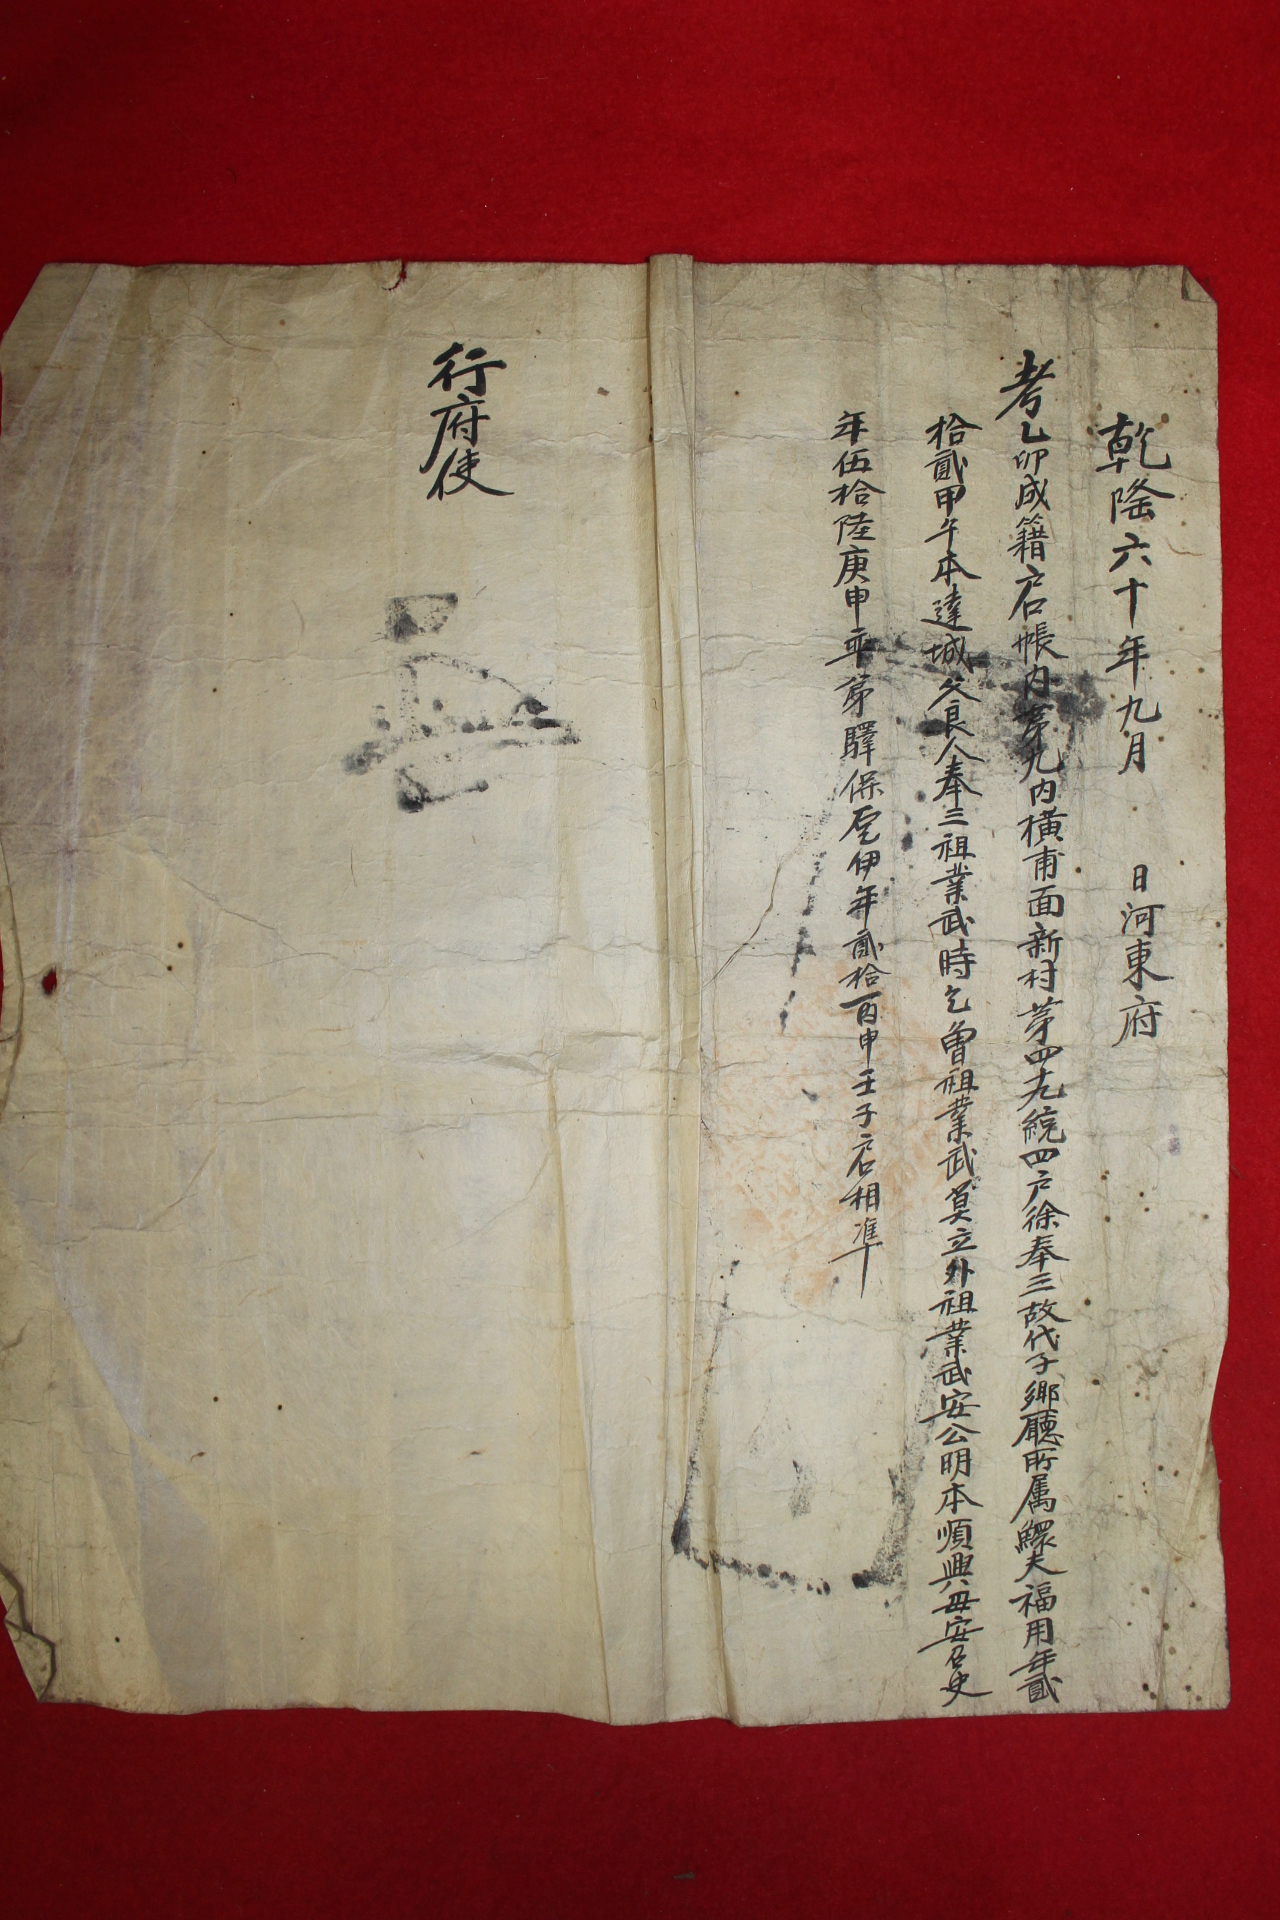 乾隆六十年九月 日河東府
考乙卯成籍戶帳內第九內橫甫面新村第四十九統四戶徐奉三故代子鄉廳所属鰥夫福用年貳
拾貳甲午本達城父良人奉三祖業武時乞曾祖業武莫立外祖業武安公明本順興母安召史
年伍拾陸庚申 第驛保 伊年貳拾 申壬子戶相準
行府使